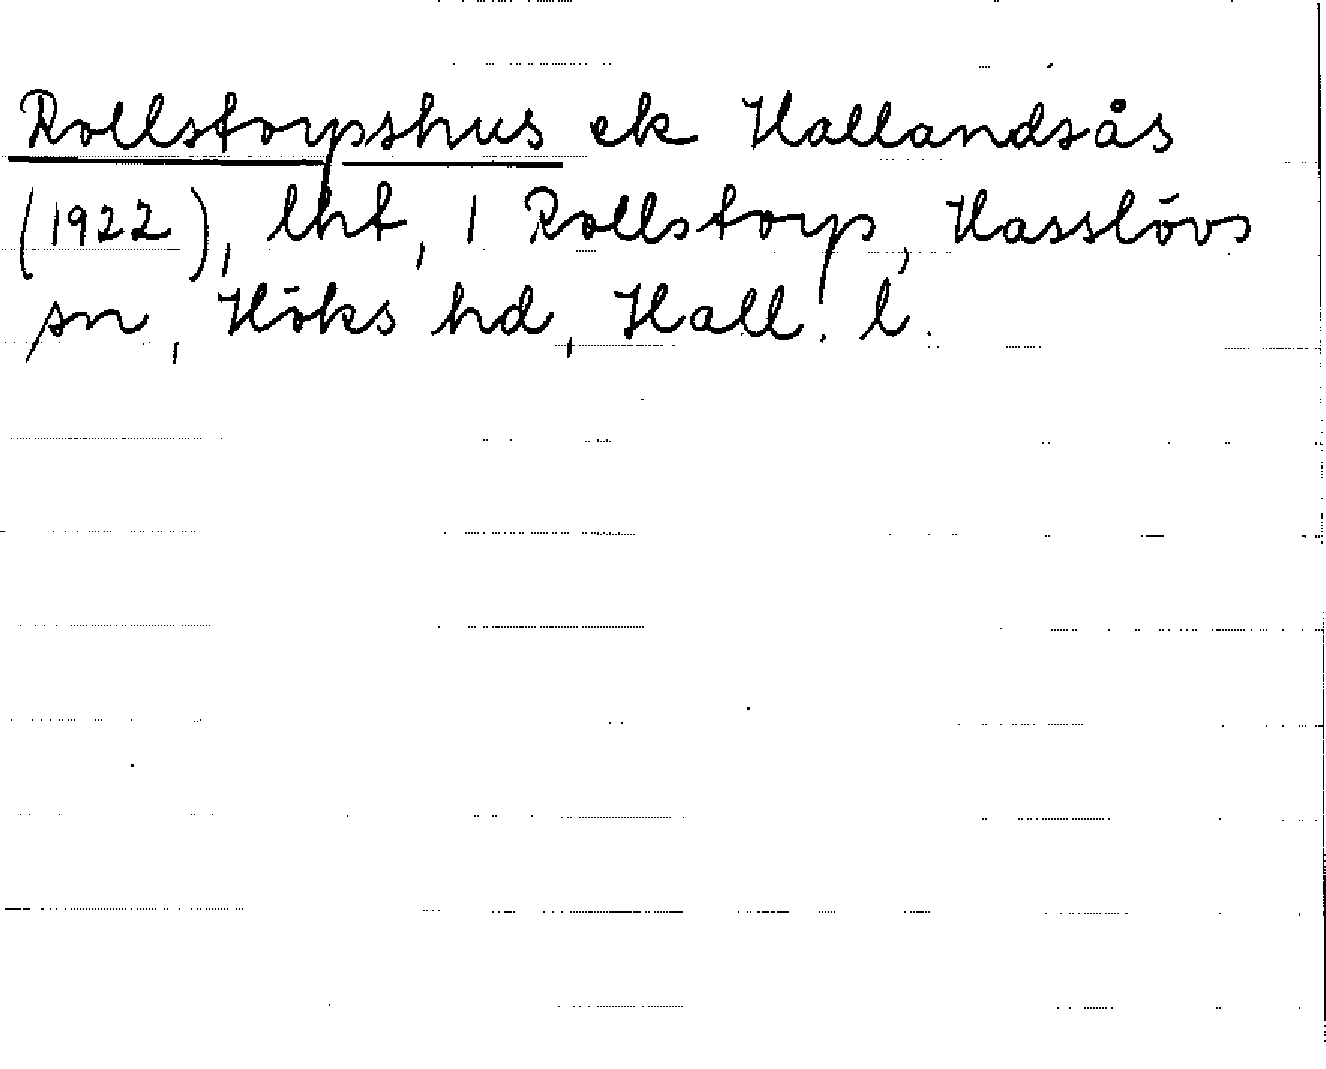 Rollstorpshus ek Hallandsås
(1922), lht, 1 Rollstorp, Hasslövs
sn, Höks hd, Hall. l.